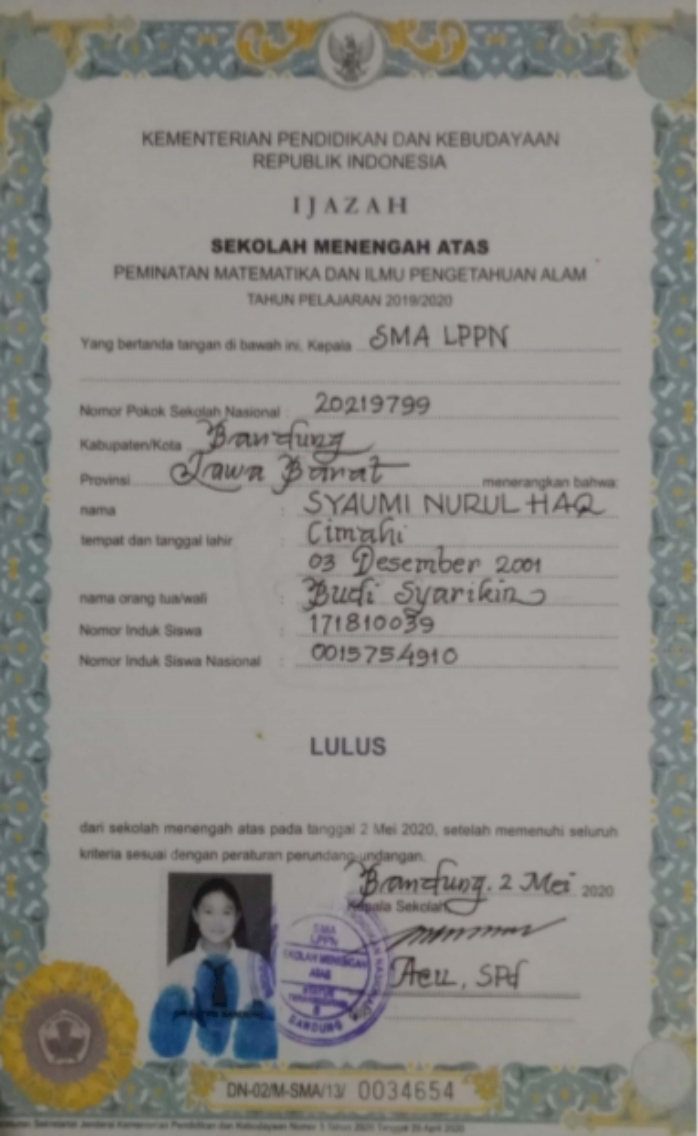 KEMENTERIAN PENDIDIKAN DAN KEBUDAYAAN
REPUBLIK INDONESIA
IJAZAH
SEKOLAH MENENGAH ATAS
PEMINATAN MATEMATIKA DAN ILMU PENGETAHUAN ALAM
TAHUN PELAJARAN 2019/2020
Yang bertanda tangan di bawah ini, Kepala SMA LPPN
Nomor Pokok Sekolah Nasional : 20219799
Kabupaten/Kota Bandung
Provinsi Jawa Barat menerangkan bahwa:
nama : SYAUMI NURUL HAQ
tempat dan tanggal lahir : Cimahi
03 Desember 2001
nama orang tua/wali : Budi Syarikin
Nomor Induk Siswa : 171810039
Nomor Induk Siswa Nasional : 0015754910
LULUS
dari sekolah menengah atas pada tanggal 2 Mei 2020, setelah memenuhi seluruh
kriteria sesuai dengan peraturan perundang-undangan.
Bandung, 2 Mei 2020
Kepala Sekolah
SMA
LPPN
SEKOLAH MENENGAH
ATAS
STATUS
BANDUNG
Aeu, SPd
DN-02/M-SMA/13/ 0034654